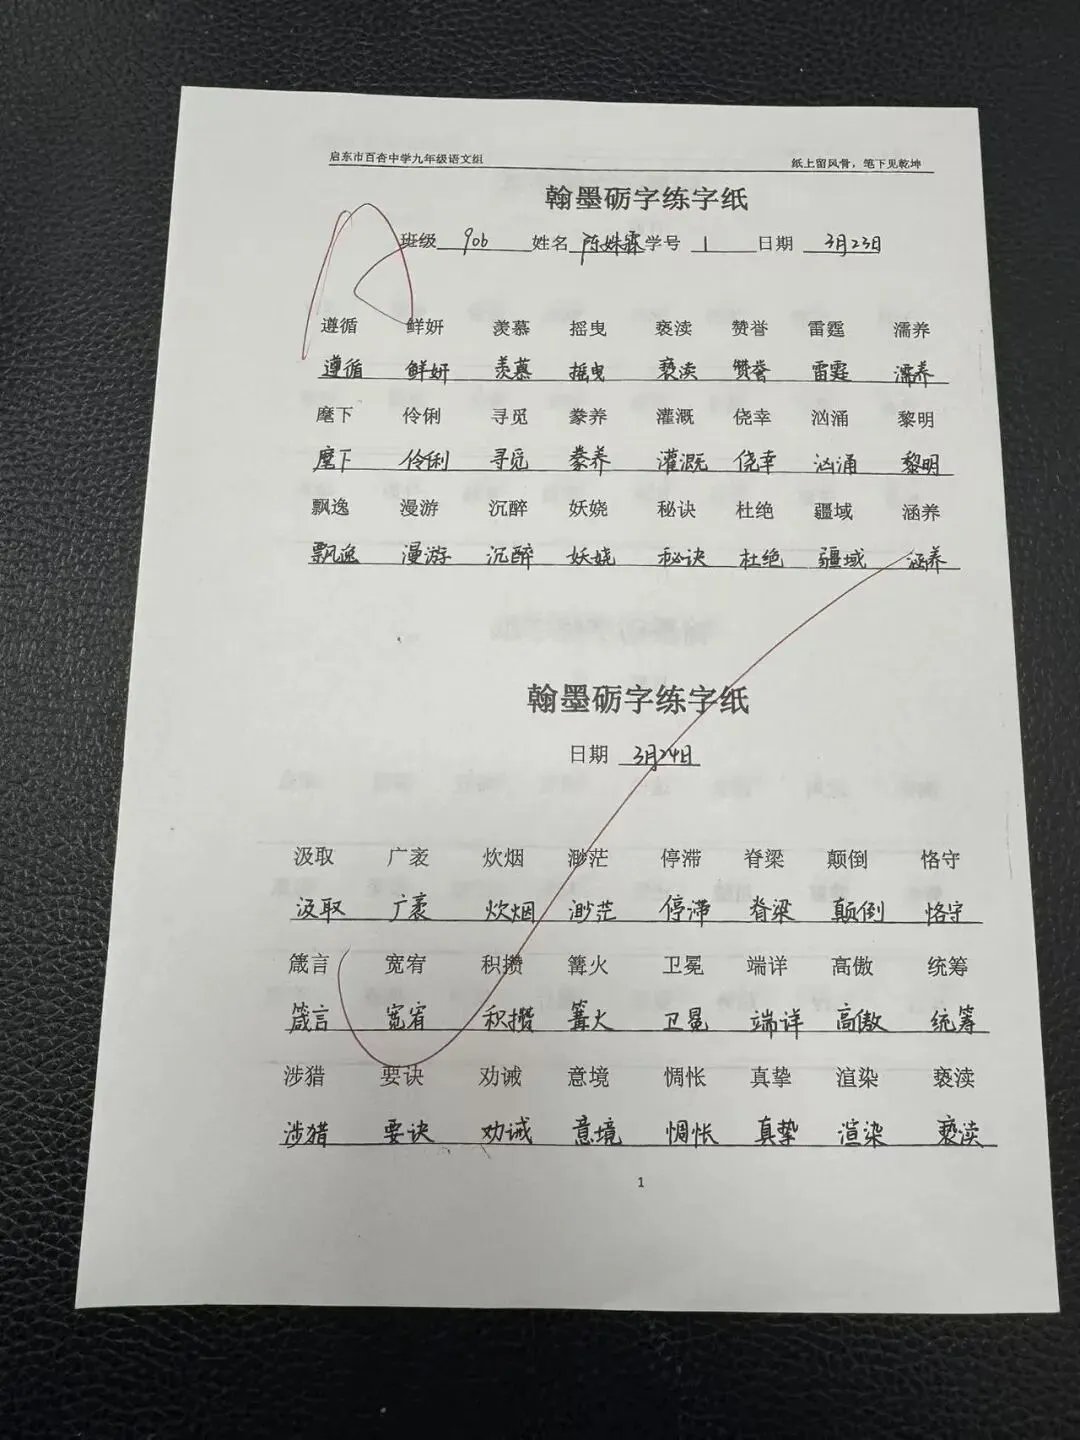 启东市百杏中学九年级语文组 纸上留风骨，笔下见乾坤
翰墨砺字练字纸
班级 906 姓名 陈姝霖 学号 1 日期 3月23日
遵循 鲜妍 羡慕 摇曳 亵渎 赞誉 雷霆 濡养
遵循 鲜妍 羡慕 摇曳 亵渎 赞誉 雷霆 濡养
麾下 伶俐 寻觅 豢养 灌溉 侥幸 汹涌 黎明
麾下 伶俐 寻觅 豢养 灌溉 侥幸 汹涌 黎明
飘逸 漫游 沉醉 妖娆 秘诀 杜绝 疆域 涵养
飘逸 漫游 沉醉 妖娆 秘诀 杜绝 疆域 涵养
翰墨砺字练字纸
日期 3月24日
汲取 广袤 炊烟 渺茫 停滞 脊梁 颠倒 恪守
汲取 广袤 炊烟 渺茫 停滞 脊梁 颠倒 恪守
箴言 宽宥 积攒 篝火 卫冕 端详 高傲 统筹
箴言 宽宥 积攒 篝火 卫冕 端详 高傲 统筹
涉猎 要诀 劝诫 意境 惆怅 真挚 渲染 亵渎
涉猎 要诀 劝诫 意境 惆怅 真挚 渲染 亵渎
1